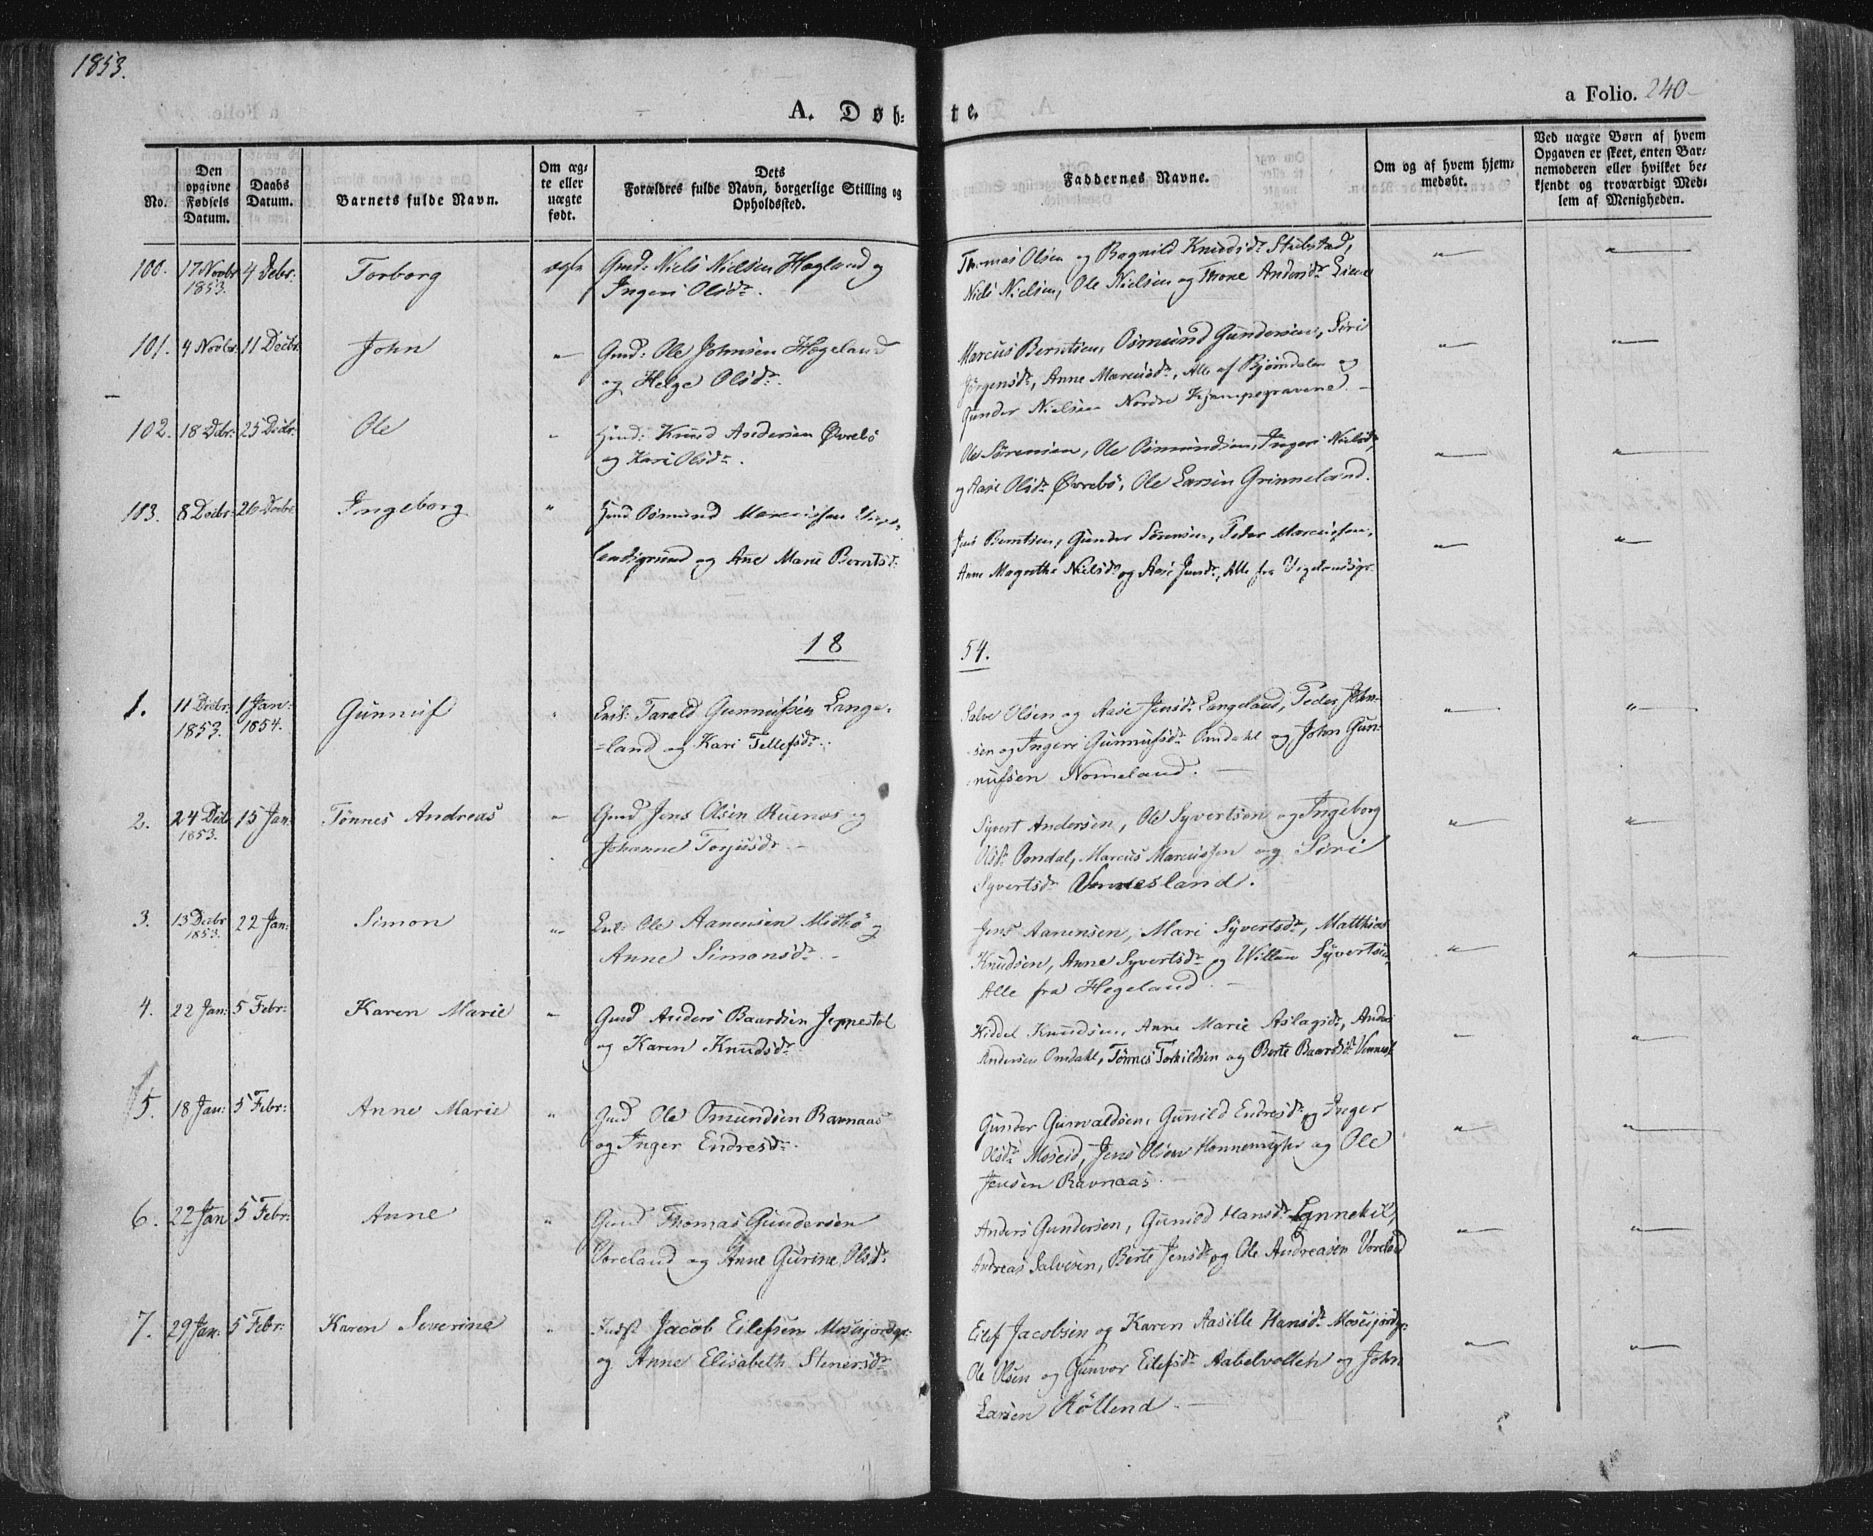 1853.
a Folio. 240
A. Døb-
te.
No.
Den opgivne Fødsels Datum.
Daabs Datum.
Barnets fulde Navn.
Om ægte eller uægte født.
Dets
Forældres fulde Navn, borgerlige Stilling og
Opholdssted.
Faddernes Navne.
Om og af hvem hjem-
medøbt.
Ved uægte Børn af hvem
Opgaven er skeet, enten Bar-
nemoderen eller hvilket be-
kjendt og troværdigt Med-
lem af Menigheden.
100. 17 Novbr 1853. 4 Debr: Torborg ægte Gmd: Niels Nielsen Hægland og
Ingeri Olsdr.
Thomas Olsen og Ragnild Knudsdr Stubstad,
Niels Nielsen, Ole Nielsen og Thone Andersdr
101. 4 Novbr. 11 Decbr. John " Gmd: Ole Johnsen Hægeland
og Helge Olsdr.
Marcus Berntsen, Osmund Gundersen, Siri
Jørgensdr, Anne Marcusdr, Alle af Bjørndalen og
Gunder Nielsen Nordre Kjempegravene.
102. 18 Debr: 25 Decbr: Ole " Gmd: Knud Andersen Øvrebø
og Kari Olsdr.
Ole Sørensen, Ole Osmundsen, Ingeri Nielsdr,
og Aase Olsdr Øvrebø, Ole Larsen Grinneland.
103. 8 Decbr: 26 Decbr Ingeborg " Osmund Marcussen
og Ane Marie Berntsdr.
Jens Berntsen, Gunder Sørensen, Peder Marcussen,
Anne Magrethe Nielsdr og Aase Jensdr, Alle fra Vigelandsgr.
18
54.
1. 11 Decbr: 1853. 1 Jan: 1854. Gunnuf " Tarald Gunnufsen Lange-
=land og Kari Tellefsdr.
Salve Olsen og Aase Jensdr Langeland, Peder John-
sen og Ingeri Gunnufsdr Omdahl og John Gun-
nufsen Nomeland.
2. 24 Decbr 1853. 15 Jan: Tønnes Andreas " Gmd Jens Olsen Ruenæs og
Johanne Torjusdr
Syvert Andersen, Ole Syvertsen og Ingeborg
Olsdr Omdal, Marcus Marcussen og Siri
Syvertsdr Vennesland.
3. 13 Decbr 1853. 22 Jan: Simon " Ole Aanensen Midbø og
Anne Simonsdr.
Jens Aanensen, Mari Syvertsdr, Matthias
Knudsen, Anne Syvertsdr og Willum Syvertsen,
Alle fra Hegeland.
4. 22 Jan: 5 Febr: Karen Marie " Gmd Anders Baardsen Jeppestøl
og Karen Knudsdr.
Kiddel Knudsen, Anne Marie Aslagsdr, Anders
Andersen Omdahl, Tønnes Torkildsen og Berte Baardsdr Vennesl
5. 18 Jan: 5 Febr: Anne Marie " Gmd Ole Omundsen Ravnaas
og Inger Endresdr.
Gunder Gunvaldsen, Gunild Endresdr og Inger
Olsdr Moseid, Jens Olsen Honnemyhr og Ole
Jensen Ravnaas.
6. 22 Jan 5 Febr: Anne " Gmd Thomas Gundersen
Voreland og Anne Gurine Olsdr.
Anders Gundersen, Gunild Hansdr Lynnekil,
Andreas Salvesen, Berte Jensdr og Ole Andreasen Voreland
7. 29 Jan: 5 Febr: Karen Severine " Indst Jacob Eilefsen Moseijordgr:
og Anne Elisabeth Stenersdr
Eilef Jacobsen og Karen Aasille Hansdr Moseijordgr:
Ole Olsen og Gunvor Eilefsdr Aabelvollen og John
Larsen Køllend.